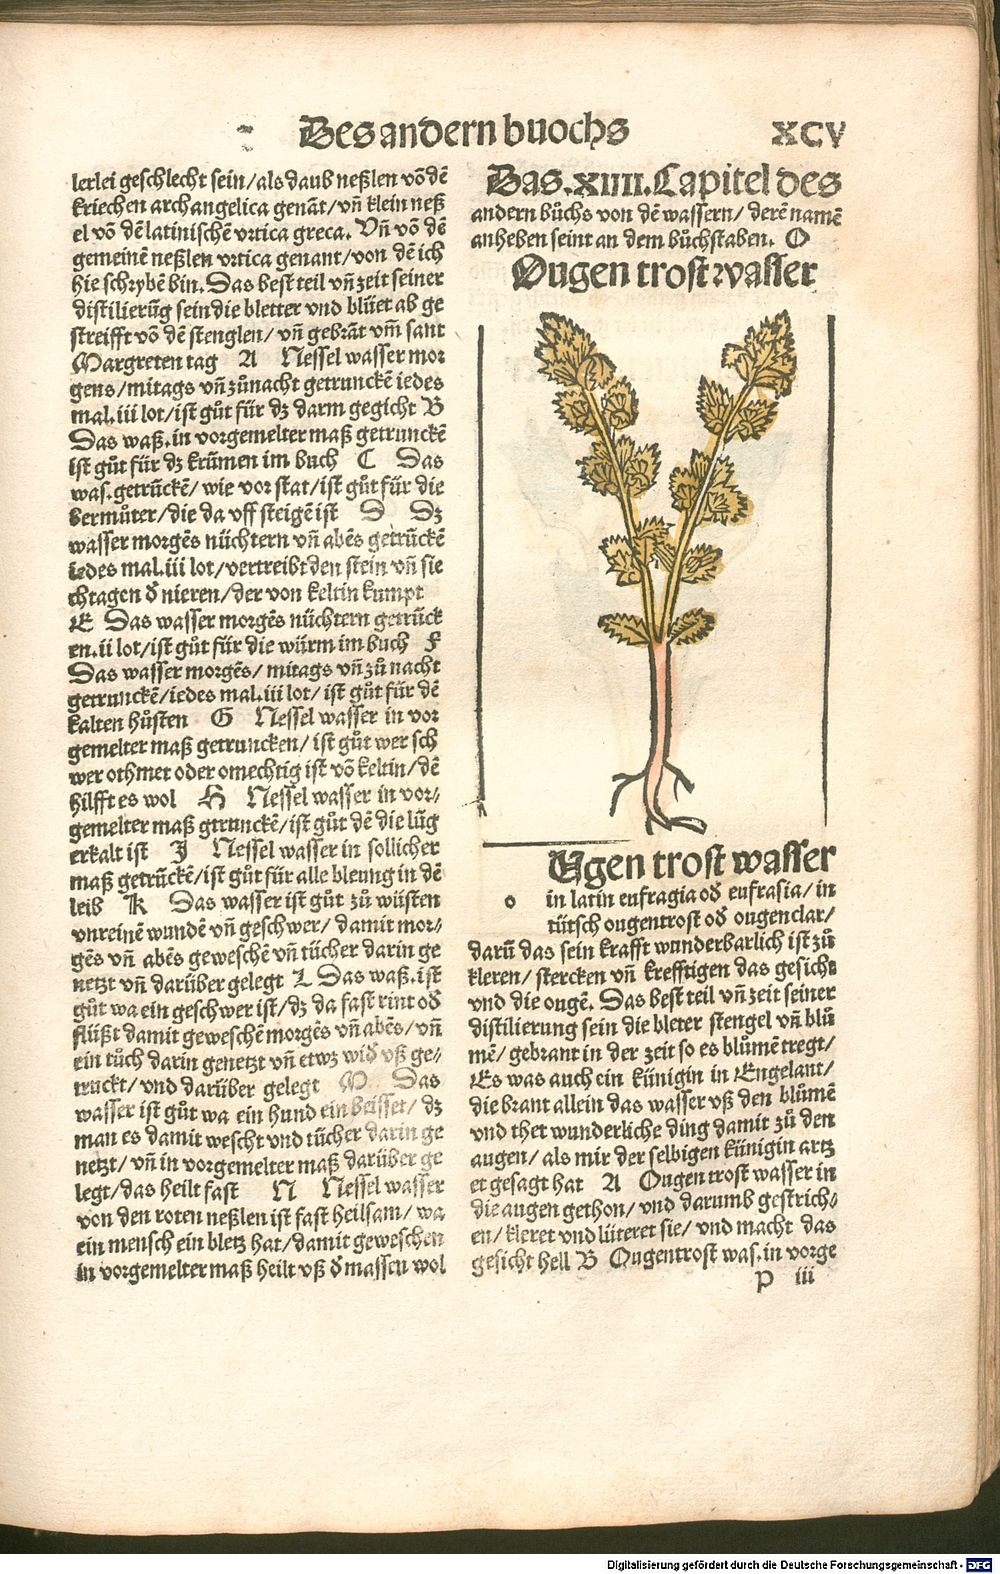 Des andern buochs XCV
lerlei geschlecht sein/als daub neßlen võ dẽ
kriechen archangelica genãt/vñ klein neß
el võ dẽ latinischẽ vrtica greca. Vñ võ dẽ
gemeinẽ neßlen vrtica genant/von dẽ ich
hie schrybẽ bin. Das best teil vñ zeit seiner
distilierũg sein die bletter vnd blüet ab ge
streifft võ dẽ stenglen/vñ gebrãt vm̃ sant
Margreten tag A Nessel wasser mor
gens/mitags vñ zůnacht getrunckẽ iedes
mal.iii lot/ist gůt für dz darm gegicht B
Das waß.in vorgemelter maß getrunckẽ
ist gůt für dz krũmen im buch C Das
was.getrũckẽ/wie vor stat/ist gůt für die
bermůter/die da vff steigẽ ist D Dz
wasser morgẽs nüchtern vñ abẽs getrũckẽ
iedes mal.iii lot/vertreibt den stein vñ sie
chtagen d̕ nieren/der von keltin kumpt
E Das wasser morgẽs nüchtern getrũck
en.ii lot/ist gůt für die würm im buch F
Das wasser morgẽs/mitags vñ zů nacht
getrunckẽ/iedes mal.iii lot/ist gůt für dẽ
kalten hůsten G Nessel wasser in vor
gemelter maß getruncken/ist gůt wer sch
wer othmet oder omechtig ist võ keltin/dẽ
hilfft es wol H Nessel wasser in vor-
gemelter maß gtrunckẽ/ist gůt dẽ die lũg
erkalt ist J Nessel wasser in sollicher
maß getrũckẽ/ist gůt für alle bleung in dẽ
leib K Das wasser ist gůt zů wüsten
vnreinẽ wundẽ vñ geschwer/damit mor-
gẽs vñ abẽs geweschẽ vñ tücher darin ge
netzt vñ darüber gelegt L Das waß.ist
gůt wa ein geschwer ist/dz da fast rint od̕
flüßt damit geweschẽ morgẽs vñ abẽs/vñ
ein tůch darin genetzt vñ etwz wid̕ vß ge-
truckt/vnd darüber gelegt M Das
wasser ist gůt wa ein hund ein beisset/dz
man es damit wescht vnd tücher darin ge
netzt/vñ in vorgemelter maß darüber ge
legt/das heilt fast N Nessel wasser
von den roten neßlen ist fast heilsam/wa
ein mensch ein bletz hat/damit geweschen
in vorgemelter maß heilt vß d̕ massen wol
Das.XIIII.Capitel des
andern bůchs von dẽ wassern/derẽ namẽ
anheben seint an dem bůchstaben. O
Ougen trost wasser
Ugen trost wasser
o in latin eufragia od̕ eufrasia/in
tütsch ougentrost od̕ ougenclar/
darũ das sein krafft wunderbarlich ist zů
kleren/stercken vñ krefftigen das gesicht
vnd die ougẽ. Das best teil vñ zeit seiner
distilierung sein die bleter stengel vñ blů
mẽ/gebrant in der zeit so es blůmẽ tregt/
Es was auch ein künigin in Engelant/
die brant allein das wasser vß den blůmẽ
vnd thet wunderliche ding damit zů den
augen/als mir der selbigen künigin artz
et gesagt hat A Ougen trost wasser in
die augen gethon/vnd darumb gestrich-
en/kleret vnd lüteret sie/vnd macht das
gesicht hell B Ougentrost was.in vorge
P iii
Digitalisierung gefördert durch die Deutsche Forschungsgemeinschaft - DFG